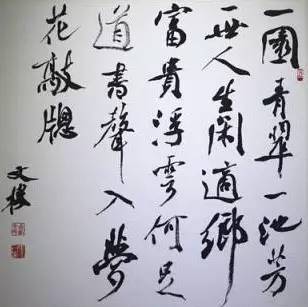 一園青翠一池芳
一世人生闲適鄉
富貴浮雲何足
道書聲入夢
花敲牕
文